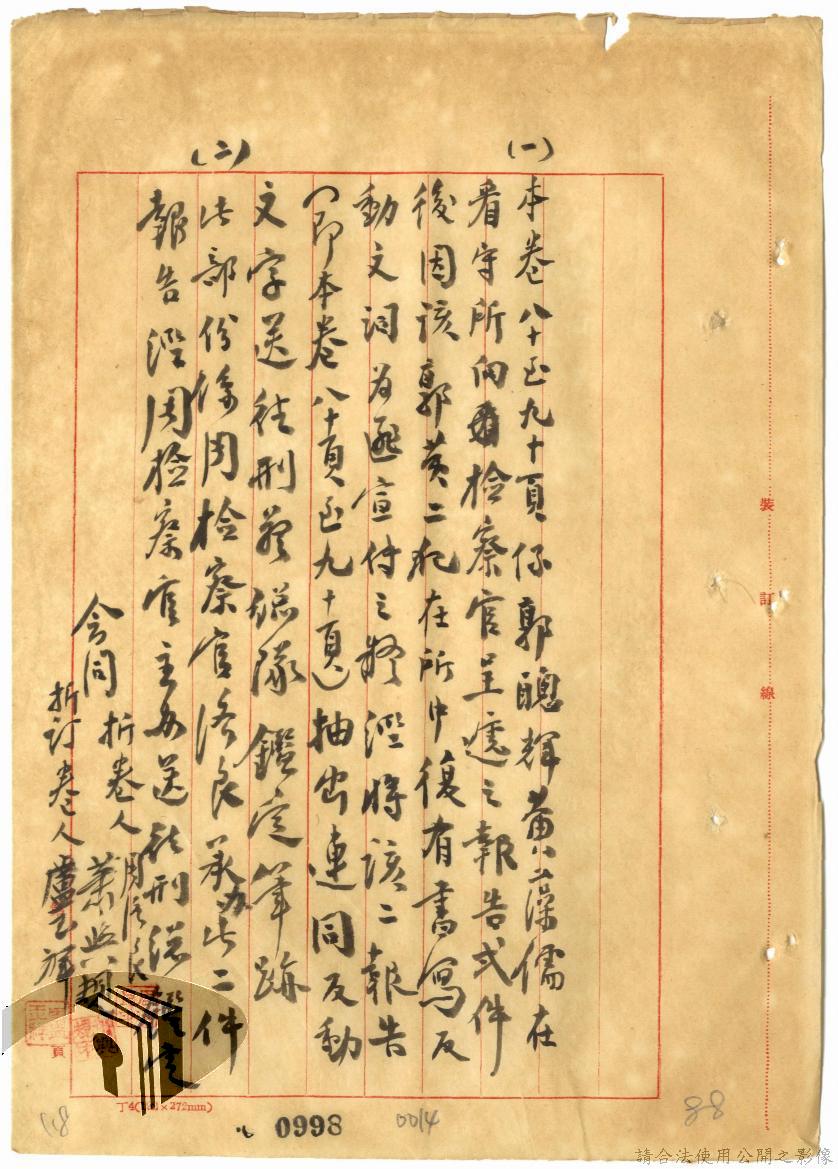 (一)
本卷八十至九十頁係郭聰輝黃藻儒在
看守所向檢察官呈遞之報告弍件
後因該郭黃二犯在所中復有書寫反
動文詞為匪宣付之辦理時該二報告
(即本卷八十頁至九十頁)抽出連同反動
文字送往刑警總隊鑑定筆跡
(二)
此部份係周檢察官咨良承辦此二件
報告經周檢察官主辦送往刑總鑑定
會同 折卷人 周咨良
蕭興規
折訂卷人 盧玉輝
裝訂線
頁
丁4(×272mm)
0998
0014
88
請合法使用公開之影像